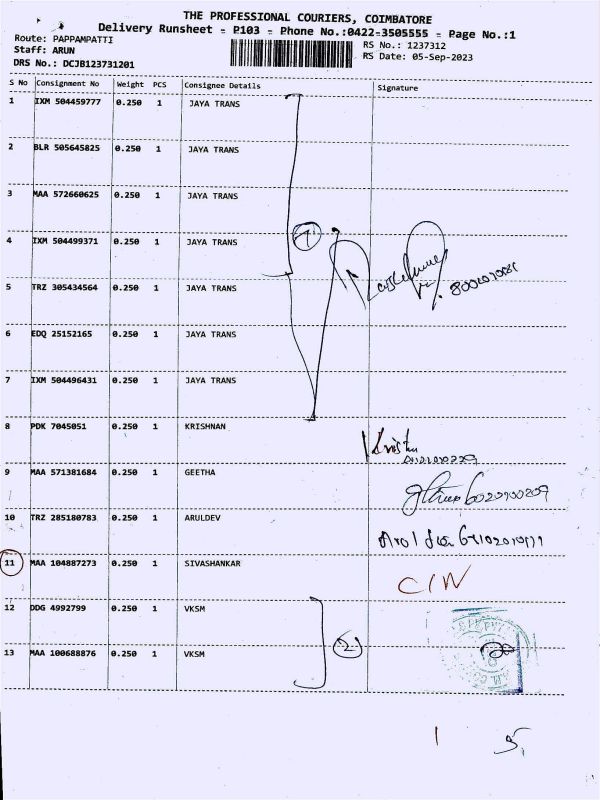 THE PROFESSIONAL COURIERS, COIMBATORE
Delivery Runsheet - P103 - Phone No.:0422-3505555 - Page No.:1
Route: PAPPAMPATTI
Staff: ARUN
DRS No.: DCJB123731201
RS No.: 1237312
RS Date: 05-Sep-2023
S No Consignment No Weight PCS Consignee Details Signature
1 IXM 504459777 0.250 1 JAYA TRANS
2 BLR 505645825 0.250 1 JAYA TRANS
3 MAA 572660625 0.250 1 JAYA TRANS
7
4 IXM 504499371 0.250 1 JAYA TRANS
5 TRZ 305434564 0.250 1 JAYA TRANS
6 EDQ 25152165 0.250 1 JAYA TRANS
7 IXM 504496431 0.250 1 JAYA TRANS
8 PDK 7045051 0.250 1 KRISHNAN
9 MAA 571381684 0.250 1 GEETHA
10 TRZ 285180783 0.250 1 ARULDEV
11 MAA 104887273 0.250 1 SIVASHANKAR C/W
12 DDG 4992799 0.250 1 VKSM
2
13 MAA 100688876 0.250 1 VKSM